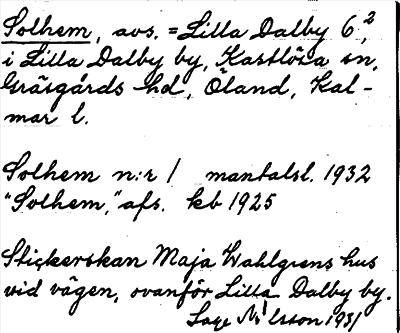 Solhem, avs. = Lilla Dalby 6²,
i Lilla Dalby by, Kastlösa sn,
Gräsgårds hd, Öland, Kal-
mar l.
Solhem n:r 1 mantalsl. 1932
"Solhem," afs. kb 1925
Stickerskan Maja Wahlgrens hus
vid vägen, ovanför Lilla Dalby by.
Nilsson 1931